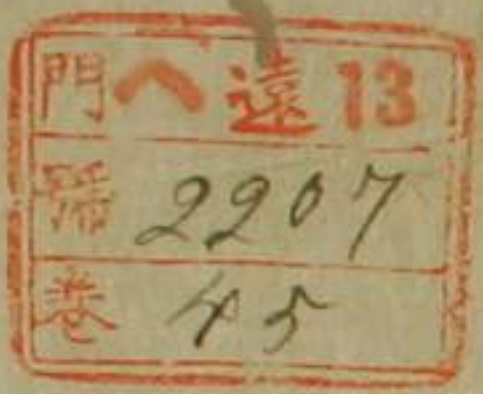 門 へ 遠 13
號 2207
卷 45